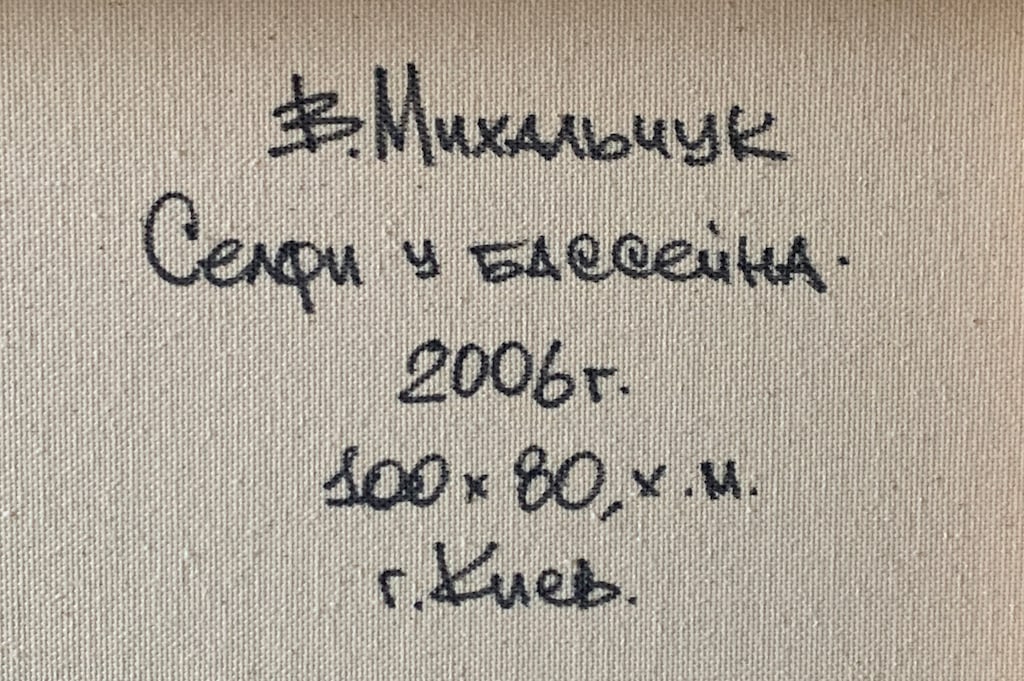 В. Михальчук
Селфи у бассейна.
2006г.
100 x 80, х.м.
г. Киев.